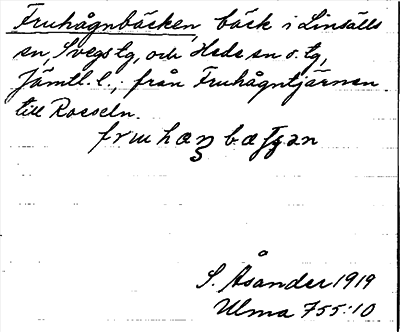 Fruhågnbäcken, bäck i Linsälls
sn, Svegs tg, och Hede sn o. tg,
Jämtl. l., från Fruhågntjärnen
till Rosseln.
S. Åsander 1919
Ulma 755:10